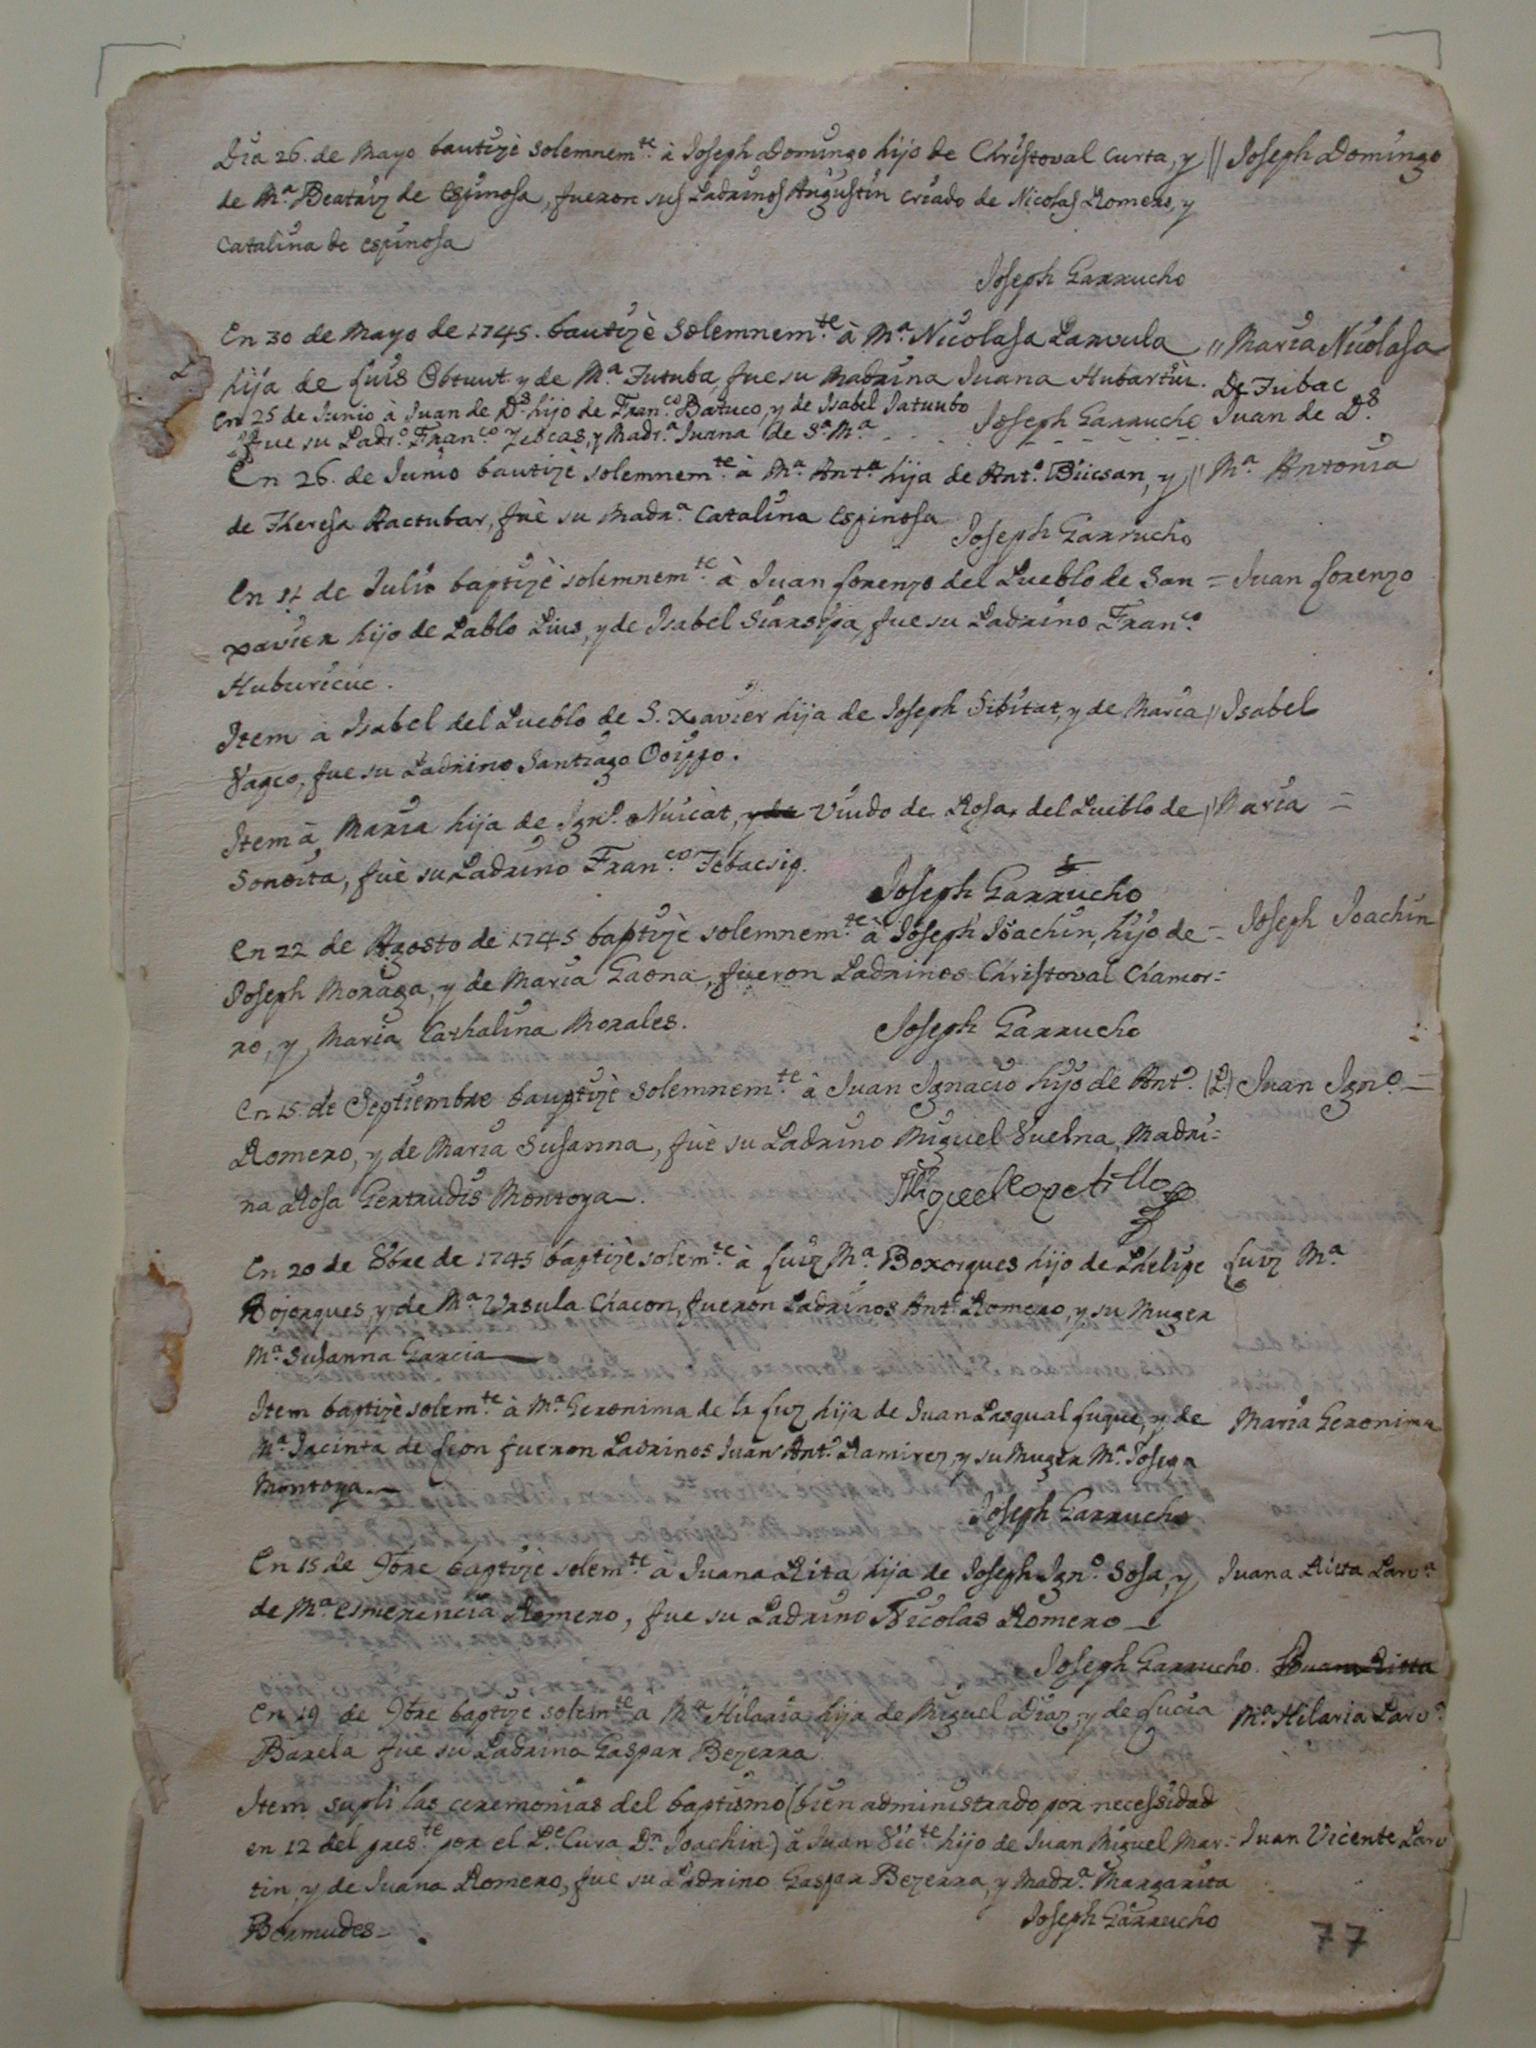 Dia 26. de Mayo bautizè solemnem.te à Joseph Domingo hijo de Christoval Curta, y // Joseph Domingo
de M.a Beatriz de Espinosa, fueron sus Padrinos Augustin criado de Nicolas Romero, y
Catalina de Espinosa
Joseph Garrucho
En 30 de Mayo de 1745. bautizè Solemnem.te à M.a Nicolasa Parvula // Maria Nicolasa
hija de Luis Obtuut y de M.a Tutuba, fue su Madrina Juana Hubartui. De Tubac
En 25 de Junio à Juan de D.s hijo de Fran.co Batuco, y de Isabel Tatuubo Joseph Garrucho Juan de D.s
fue su Padr.o Fran.co Zebcas, y Madr.a Juana de S.a M.a
En 26. de Junio bautizè solemnem.te à M.a Ant.a hija de Ant.o Biicsan, y // M.a Antonia
de Theresa Aactubar, fuè su Madr.a Catalina Espinosa
Joseph Garrucho
En 14 de Julio baptizè solemnem.te à Juan Lorenzo del Pueblo de San = Juan Lorenzo
xavier hijo de Pablo Pius, y de Isabel Siarspa, fue su Padrino Fran.co
Huburicuc.
Item à Isabel del Pueblo de S. Xavier hija de Joseph Sibitat, y de Maria // Isabel
Vageo, fue su Padrino Santiago Ooippo.
Item à Maria hija de Ign.o Nuicat, y de Viudo de Rosa, del Pueblo de // Maria =
Sonoita, fuè su Padrino Fran.co Tebacsig.
Joseph Garrucho
En 22 de Agosto de 1745 baptizè solemnem.te à Joseph Joachin, hijo de = Joseph Joachin
Joseph Moraga, y de Maria Gaona, fueron Padrinos Christoval Chamor=
ro, y Maria Cathalina Morales.
Joseph Garrucho
En 15. de Septiembre baptizè Solemnem.te à Juan Ignacio hijo de Ant.o Juan Ign.o =
Romero, y de Maria Susanna, fuè su Padrino Miguel Vuelna, Madri=
na Rosa Gertrudis Montoya.
Miguel Capetillo
En 20 de 8bre de 1745 baptizè solem.te à Luiz M.a Boxorques hijo de Phelipe Luiz M.a
Bojorques, y de M.a Ursula Chacon, fueron Padrinos Ant.o Romero, y su Muger
M.a Susanna Garcia
Item baptizè solem.te à M.a Geronima de la Luz hija de Juan Pasqual Luque, y de Maria Geronima
M.a Jacinta de Leon fueron Padrinos Juan Ant.o Ramirez, y su Muger M.a Josepa
Montoya.
Joseph Garrucho
En 15 de 9bre baptizè solem.te à Juana Rita hija de Joseph Ign.o Sosa, y Juana Ritta Parv.a
de M.a Esmerencia Romero, fue su Padrino Nicolas Romero
Joseph Garrucho. Juana Ritta
En 19 de 9bre baptizè solem.te a M.a Hilaria hija de Miguel Diaz, y de Lucia M.a Hilaria Parv.a
Barela fue su Padrino Gaspar Bezerra
Item supli las ceremonias del baptismo (bien administrado por necessidad
en 12 del pres.te por el P.e Cura D.n Joachin) à Juan Vic.te hijo de Juan Miguel Mar= Juan Vicente Parv
tin y de Juana Romero, fue su Padrino Gaspar Bezerra, y Madr.a Margarita
Bermudes
Joseph Garrucho
77